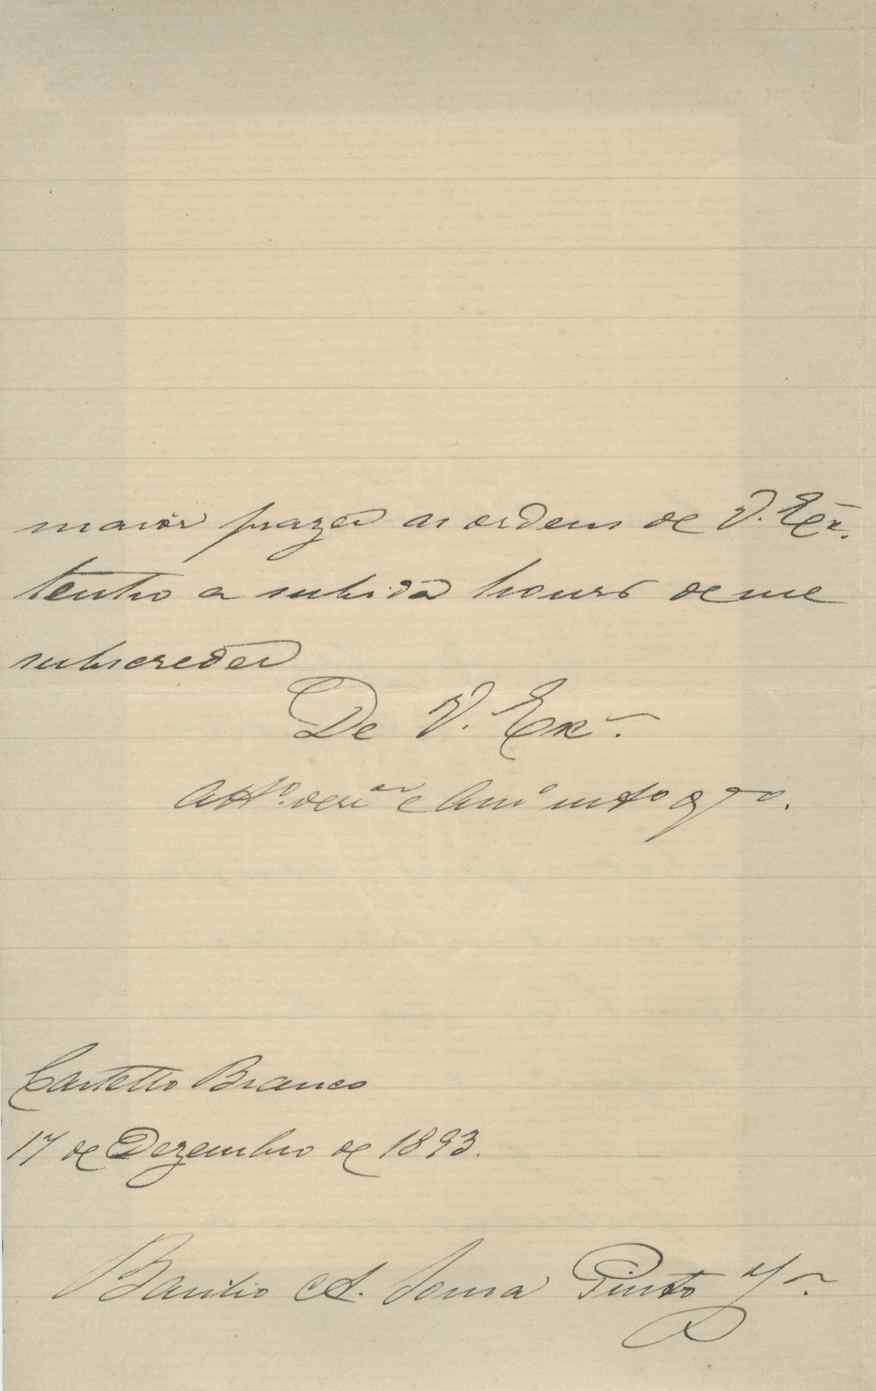 maior prazer as ordens de V. Exª.
tenho a subida honra de me
subscrever
De V. Exª.
Attº. venºr e Amº mto gto.
Castello Branco
17 de Dezembro de 1893.
Basilio A. Sousa Pinto Jr.